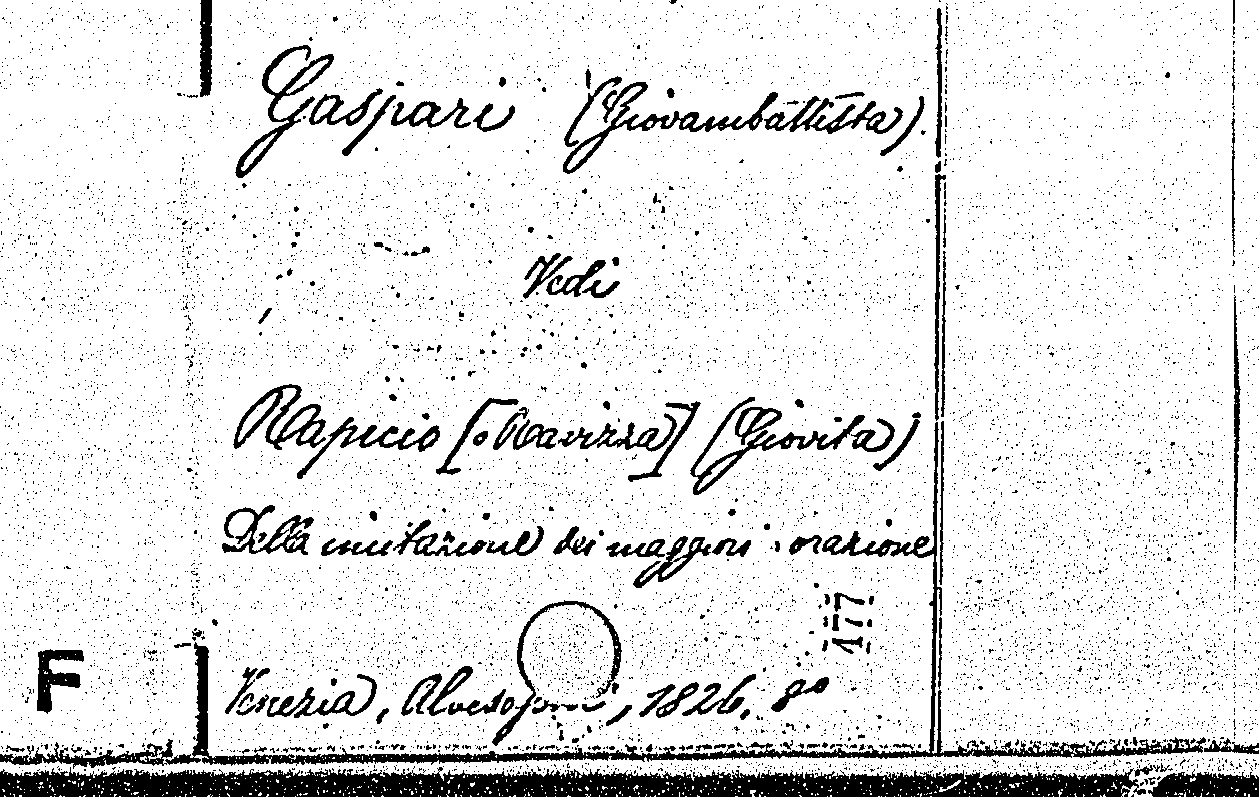 Gaspari (Giovambattista).
Vedi
Rapicio [o Ravizza] (Giovita)
Della imitazione dei maggiori: orazione
177
F
Venezia, Alvisopoli, 1826. 8º